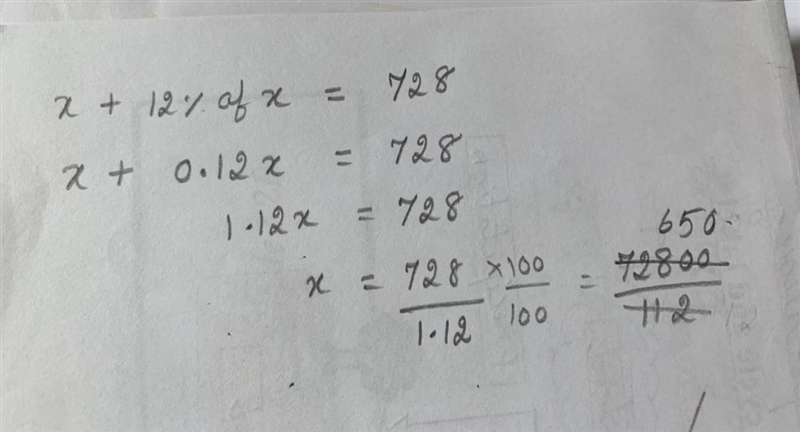 x + 12% of x = 728
x + 0.12x = 728
1.12x = 728
x = 728/1.12 × 100/100 = 72800/112 650.